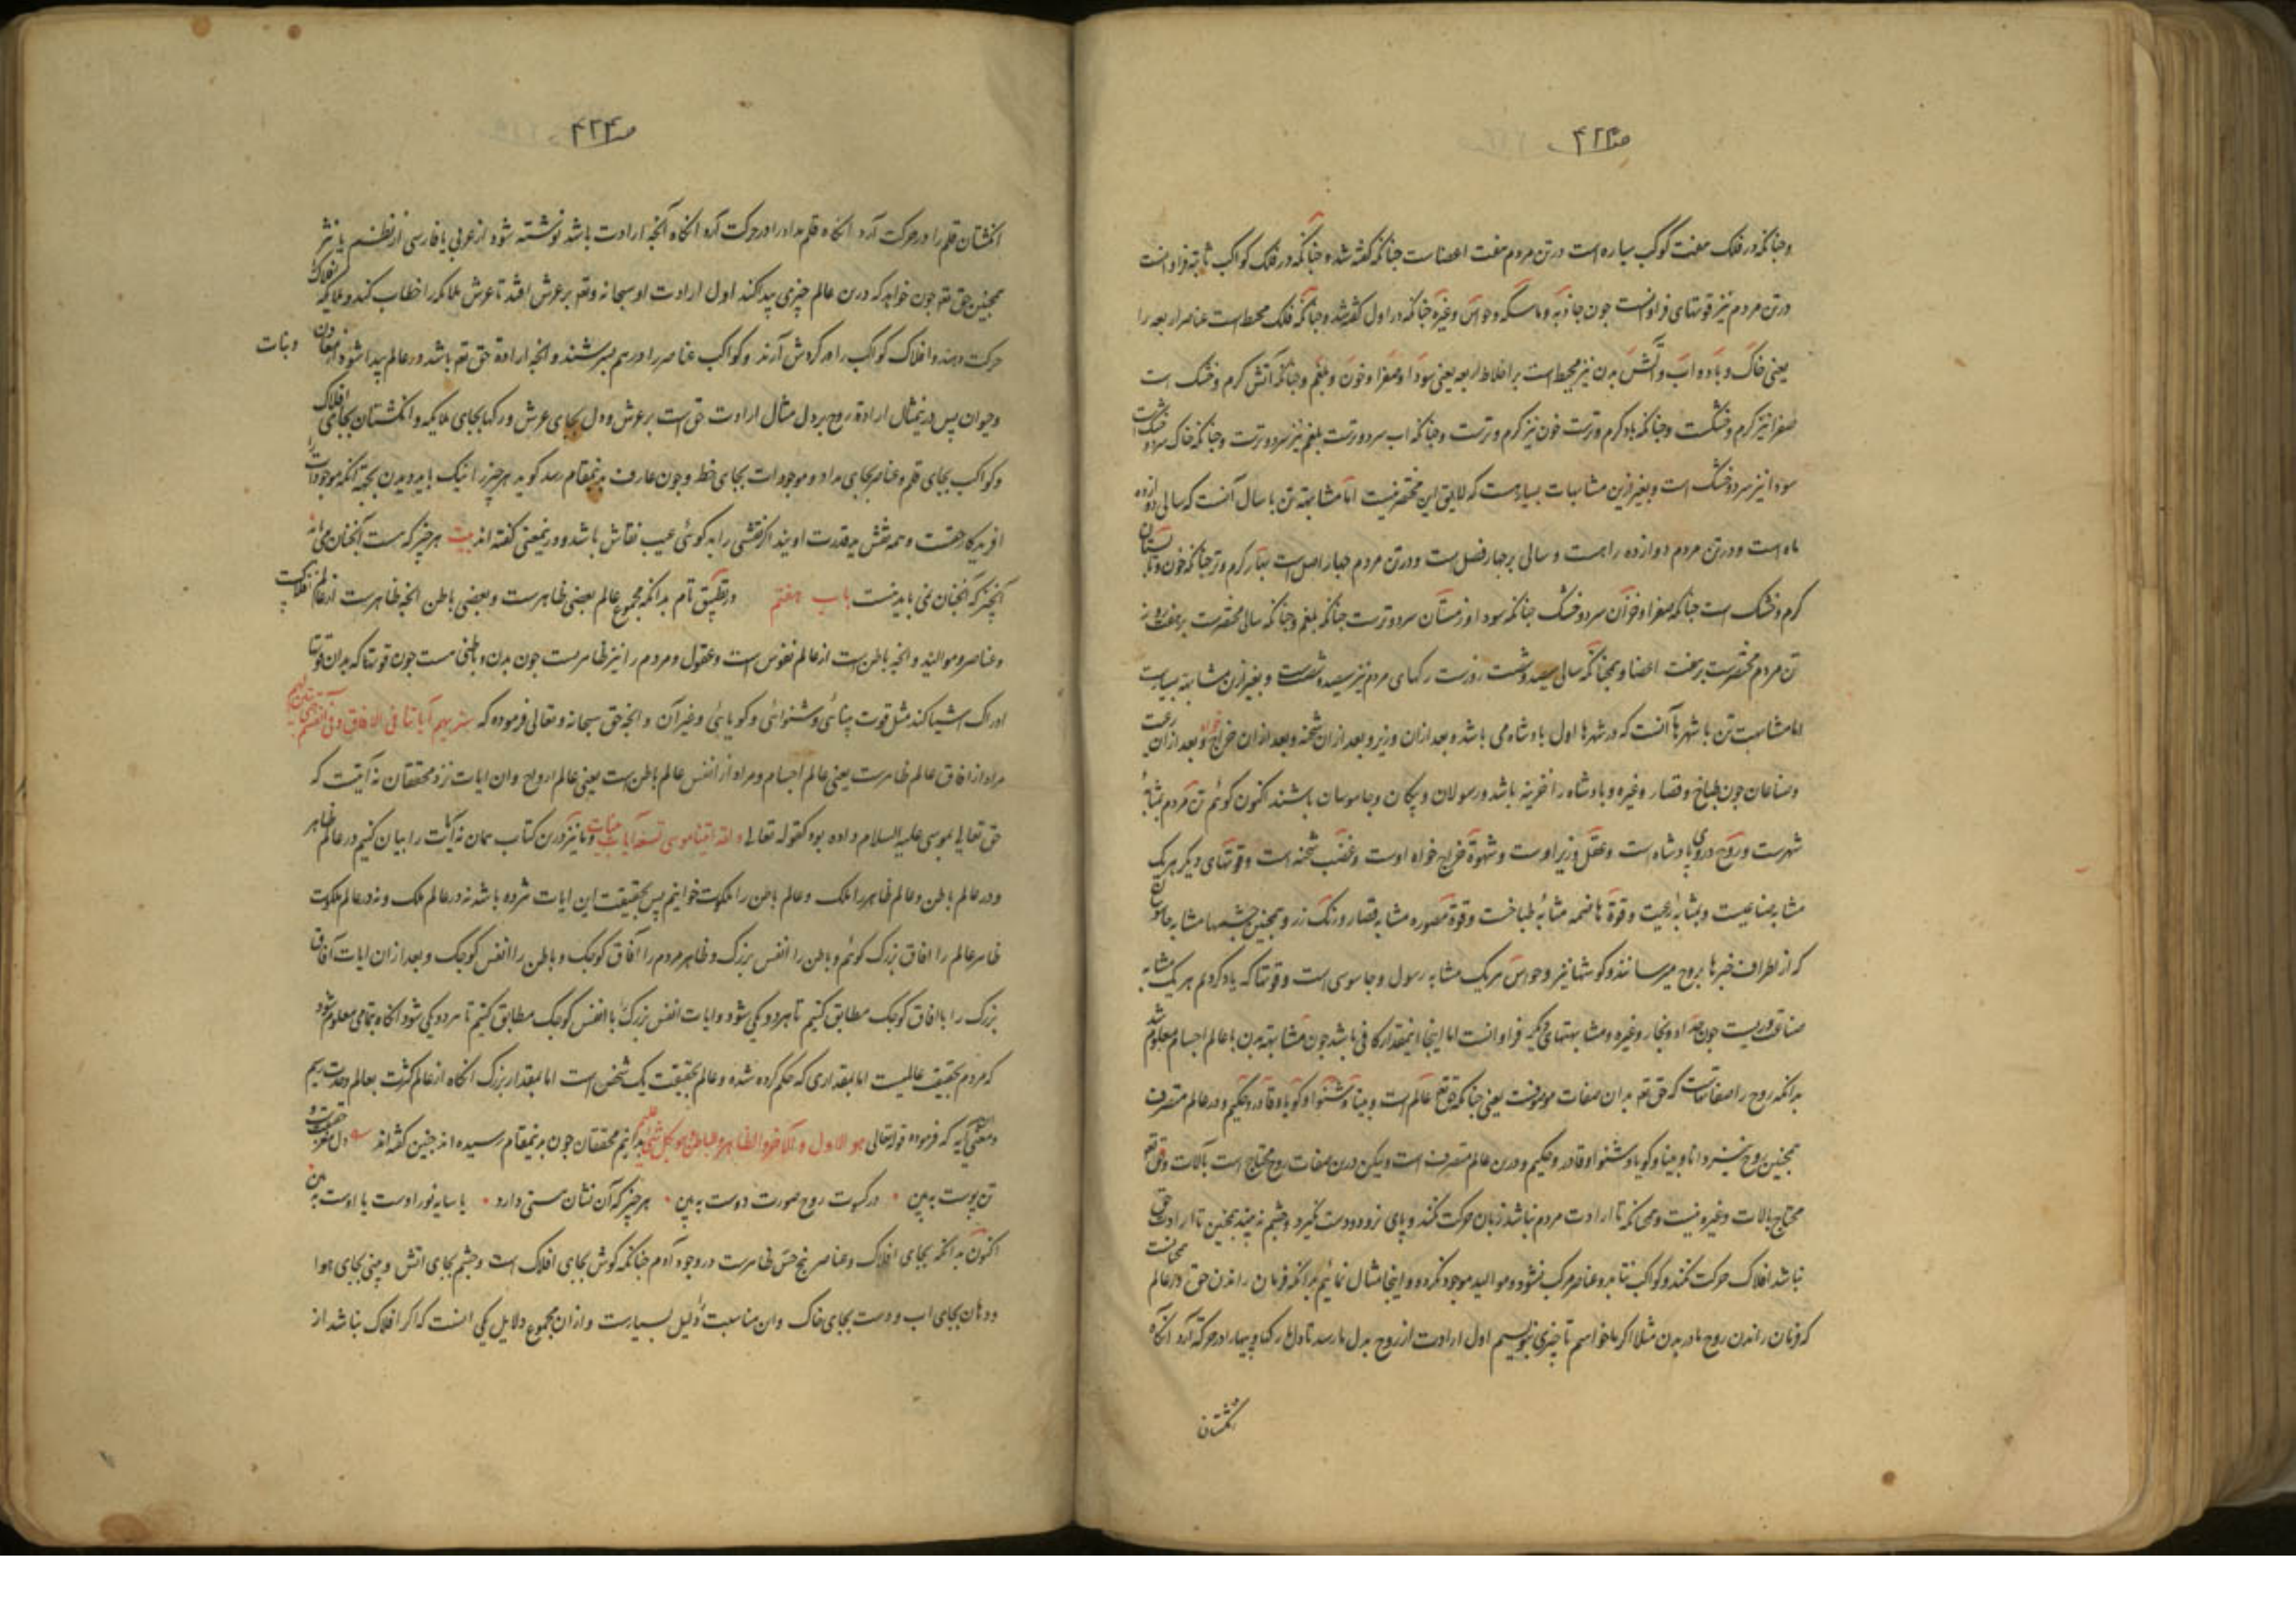 صـ۴۲۳
وجنانکه در فلک هفت کوکب سیاره است در تن مردم هفت اعضاست جنانکه گفته شد و جنانکه در فلک کواکب ثابته فراوانست
در تن مردم نیز قوتهای فراوانست جون جاذبه و ماسکه و حواس و غیره جنانکه در اول گفته شد و جنانکه فلک محیط است عناصر اربعه را
یعنی خاک و باد و اب و آتش بدن نیز محیط است بر اخلاط اربعه یعنی سودا و صفرا و خون و بلغم و جنانکه آتش کرم و خشک است
صفرا نیز کرم و خشکست و جنانکه باد کرم و ترست خون نیز کرم و ترست و جنانکه اب سرد و ترست بلغم نیز سرد و ترست و جنانکه خاک سرد و خشک است
سودا نیز سرد و خشک است و بغیر ازین مشابهات بسیارست که لایق این مختصر نیست اما مشابهة تن با سال آنست که سالی دوازده
ماه است و در تن مردم دوازده راهست و سالی بر جهار فصل است و در تن مردم جهار اصل است بهار کرم و تر جنانکه خون و تابستان
کرم و خشک است جنانکه صفرا و خزان سرد و خشک جنانکه سودا و زمستان سرد و ترست جنانکه بلغم و جنانکه سالی مختصرست بر هفت روز
تن مردم مختصرست بر هفت اعضا و همجنانکه سالی سیصد و شصت روزست رکهای مردم نیز سیصد و شصت است و بغیر ازین مشابهة بسیارست
اما مشابهت تن با شهرها آنست که در شهرها اول بادشاه می باشد و بعد ازان وزیر و بعد ازان شحنه و بعد ازان خراج خواه و بعد ازان رعیت
و صناعان جون طباخ و قصار و غیره و بادشاه را خزینه باشد و رسولان و پیکان و جاسوسان باشند اکنون کوئم تن مردم بمثابهٔ
شهرست و روح در وی بادشاه است و عقل وزیر اوست و شهوة خراج خواه اوست و غضب شحنه است و قوتهای دیگر هر یک
مشابه صناعیست و بمثابه رعیت و قوة هاضمه مشابهٔ طباخست و قوة مصوره مشابه قصار و رنک رز و همجنین جشمها مشابه جاسوسان
که از اطراف خبرها بروح میرسانند و کوشها نیز و حواس هر یک مشابه رسول و جاسوسی است و قوتها که یاد کردیم هر یک مشابه
صناعتوریست جون حداد و نجار و غیره و مشابهتهای دیگر فراوانست اما اینجا اینمقدار کافی باشد جون مشابهة بدن با عالم اجسام معلوم شد
بدانکه روح را صفاتهاست که حق تع بدان صفات موصوفست یعنی جنانکه حق تع عالم است و بینا و شنوا و کویا و قادر و حکیم و در عالم متصرف
همجنین روح نیز دانا و بینا و کویا و شنوا و قادر و حکیم و درین عالم متصرف است ولیکن درین صفات روح محتاج است بآلات و حق تع
محتاج بالات و غیره نیست و همجنانکه تا ارادت مردم نباشد زبان حرکت نکند و پای نرود و دست نکیرد و جشم نه بیند همجنین تا ارادت حق
نباشد افلاک حرکت نکند و کواکب نتابد و عناصر مرکب نشود و موالید موجود نکردد و اینجا مثال نمائیم بدانکه فرمان راندن حق در عالم همجنانست
که فرمان راندن روح ما در بدن مثلا اکر ما خواهیم تا چیزی بنویسیم اول ارادت از روح بدل ما رسد تا دل رکها و پیها را در حرکة آرد آنکاه
انکشتان
صـ۴۲۴
انکشتان قلم را در حرکت آرد انکاه قلم مداد را در حرکت آرد انکاه آنجه ارادت باشد نوشته شود از عربی یا فارسی از نظم یا نثر
همجنین حق تع جون خواهد که درین عالم چیزی پیدا کند اول ارادت او سبحانه و تع بر عرش افتد تا عرش ملائکه را خطاب کند و ملائکه افلاک را
حرکت دهند و افلاک کواکب را در کردش آرند و کواکب عناصر را در هم بسرشند و انجه ارادة حق تع باشد در عالم پیدا شود از معادن و نبات
و حیوان پس در نمثال ارادة روح بر دل مثال ارادت حق است بر عرش و دل بجای عرش و رکها بجای ملائیکه و انکشتان بجای افلاک
و کواکب بجای قلم و عناصر بجای مداد و موجودات بجای خط و جون عارف بدینمقام رسد کوید هر چیز را نیک باید دیدن بجهة آنکه موجودات را
افریدکار حقست و همه نقش ید قدرت اویند اکر نقشی را بد کوئی عیب نقاش باشد و در ینمعنی کفته اند بیت هر چیز که هست آنجنان می باید
آنجیز که آنجنان نمی باید نیست باب هفتم در تطبیق تام بدانکه مجموع عالم بعضی ظاهرست و بعضی باطن انجه ظاهرست از عالم افلاکست
و عناصر و موالید و انجه باطن است از عالم نفوس است و عقول و مردم را نیز ظاهریست جون بدن و باطنی هست جون قوتها که بدان قوتها
ادراک اشیا کند مثل قوت بینائی و شنوائی و کویائی و غیر آن و انجه حق سبحانه و تعالی فرموده که سنریهم آیاتنا فی الافاق و فی انفسهم حتی یتبین لهم
مراد از افاق عالم ظاهرست یعنی عالم اجسام و مراد از انفس عالم باطن است یعنی عالم ارواح و ان ایات نزد محققان نه آیتست که
حق تعالی بموسی علیه السلام داده بود کقوله تعالی و لقد اتینا موسی تسع آیات بینات و ما نیز درین کتاب همان نه آیات را بیان کنیم در عالم ظاهر
و در عالم باطن و عالم ظاهر را ملک و عالم باطن را ملکوت خوانیم پس بحقیقت این ایات نه مرده باشد نه در عالم ملک و نه در عالم ملکوت
ظاهر عالم را افاق بزرک کوئم و باطن را انفس بزرک و ظاهر مردم را آفاق کوجک و باطن را انفس کوجک و بعد ازان ایات آفاق
بزرک را با افاق کوجک مطابق کنیم تا هر دو یکی شود و ایات انفس بزرک را با انفس کوجک مطابق کنیم تا هر دو یکی شود آنکاه بتمامی معلوم شود
که مردم بحقیقت عالمیست اما بمقداری که حکم کرده شده و عالم بحقیقت یک شخص است اما بمقدار بزرک انکاه از عالم کثرت بعالم وحدت رسیم
و معنی آیه که فرموده قوله تعالی هو الاول و الاخر و الظاهر و الباطن و هو بکل شیء علیم بدانیم محققان جون بدینمقام رسیده اند جنین کفته اند دل مغز حقیقت و
تن پوست به بین • در کسوت روح صورت دوست به بین • هر چیز که آن نشان هستی دارد • یا سایه نور اوست یا اوست به بین
اکنون بدانکه بجای افلاک و عناصر پنج حس ظاهرست در وجود آدم جنانکه کوش بجای افلاک است و جشم بجای اتش و بینی بجای هوا
و دهان بجای اب و دست بجای خاک و ان مناسبت را دلیل بسیارست و ازان مجموع دلایل یکی اینست که اکر افلاک نباشد از